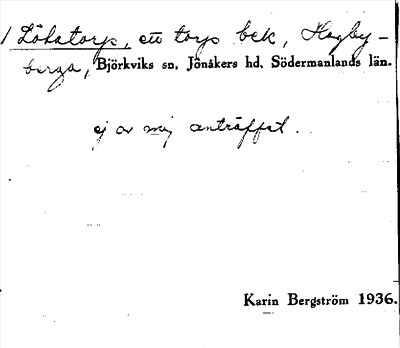 1 Lökatorp, ett torp bek, Hagby-
berga, Björkviks sn, Jönåkers hd, Södermanlands län.
ej av mig anträffat.
Karin Bergström 1936.